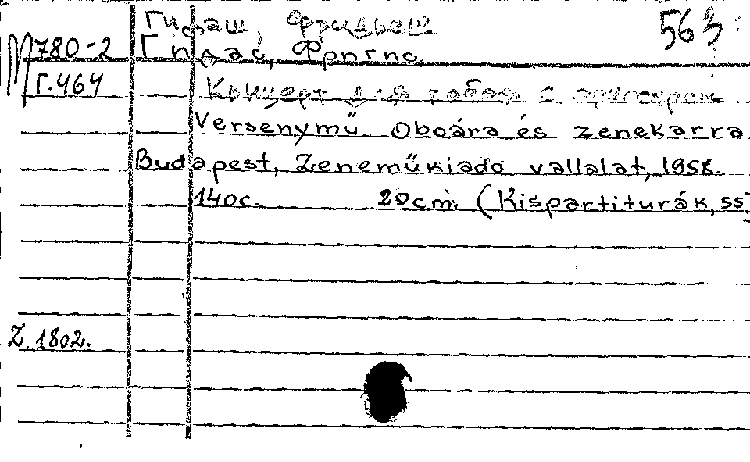 Гидаш, Фридьеш 563
М780-2 Гидас, Фригис,
Г.464
Концерт для гобоя с оркестром
Versenymű Oboára és zenekarra
Budapest, Zeneműkiadó vallalat, 1958.
140с. 20cm. (Kispartiturák, 55)
Z.1802.